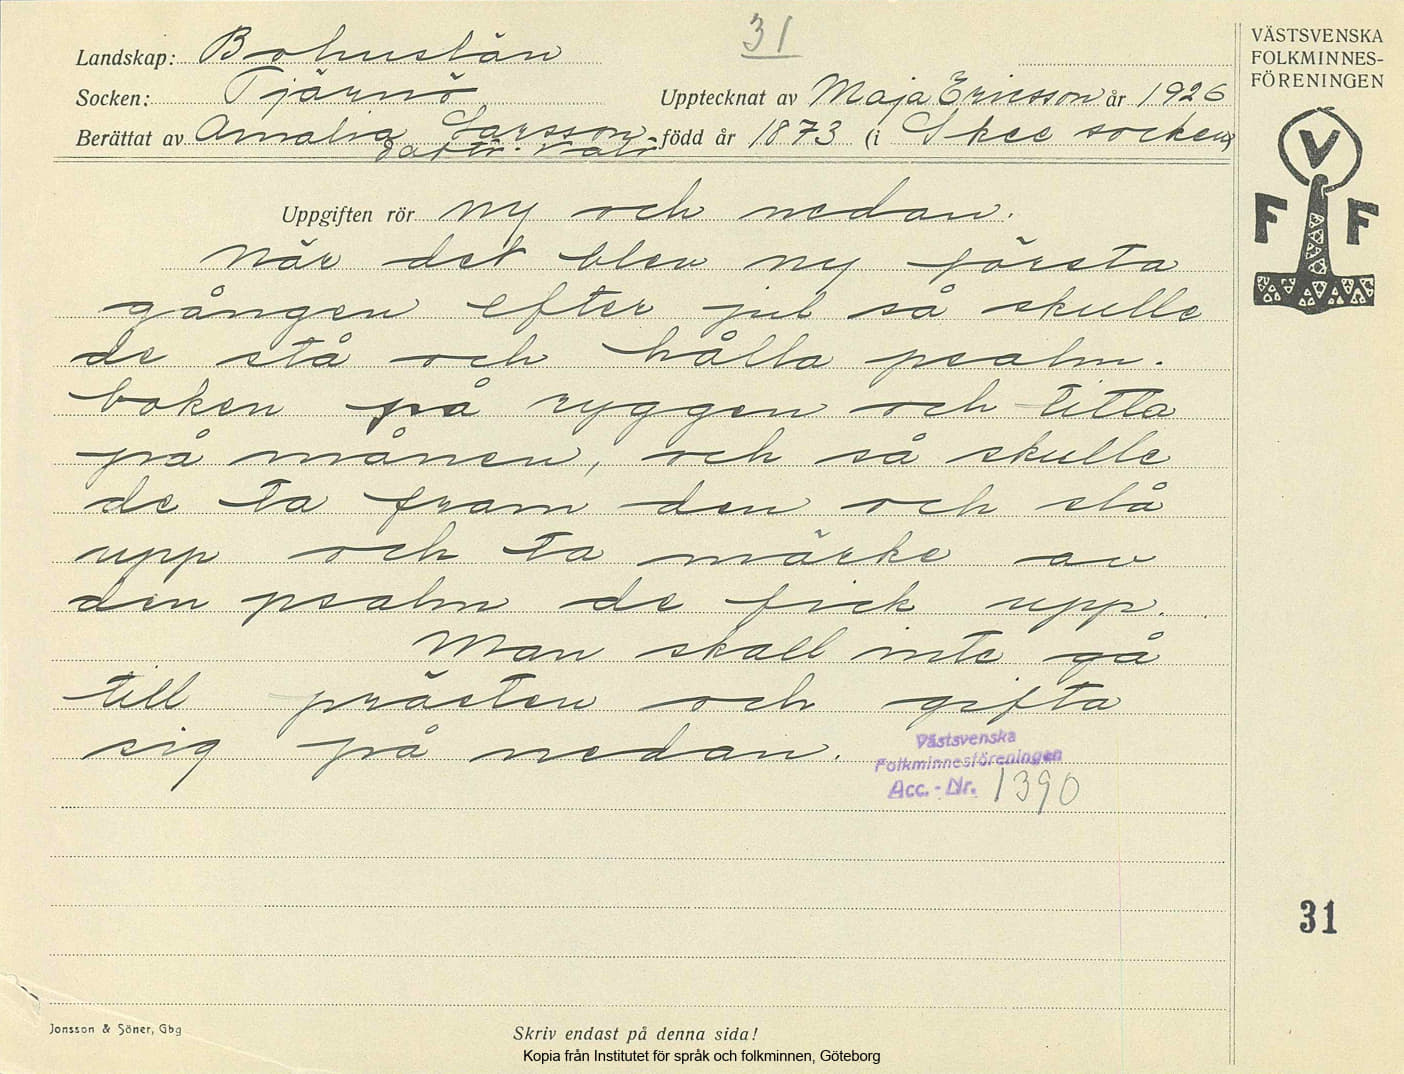 31
Landskap: Bohuslän
Socken: Tjärnö
Upptecknat av Maja Ericsson år 1926
Berättat av Amalia Larsson
född år 1873 (i Skee socken)
Uppgiften rör ny och nedan.
När det blev ny första
gången efter jul så skulle
de stå och hålla psalm-
boken på ryggen och titta
på månen, och så skulle
de ta fram den och slå
upp och ta märke av
den psalm de fick upp.
Man skall inte gå
till prästen och gifta
sig på nedan.
Västsvenska
Folkminnesföreningen
Acc. - Nr. 1390
VÄSTSVENSKA
FOLKMINNES-
FÖRENINGEN
V
F F
31
Jonsson & Söner, Gbg
Skriv endast på denna sida!
Kopia från Institutet för språk och folkminnen, Göteborg